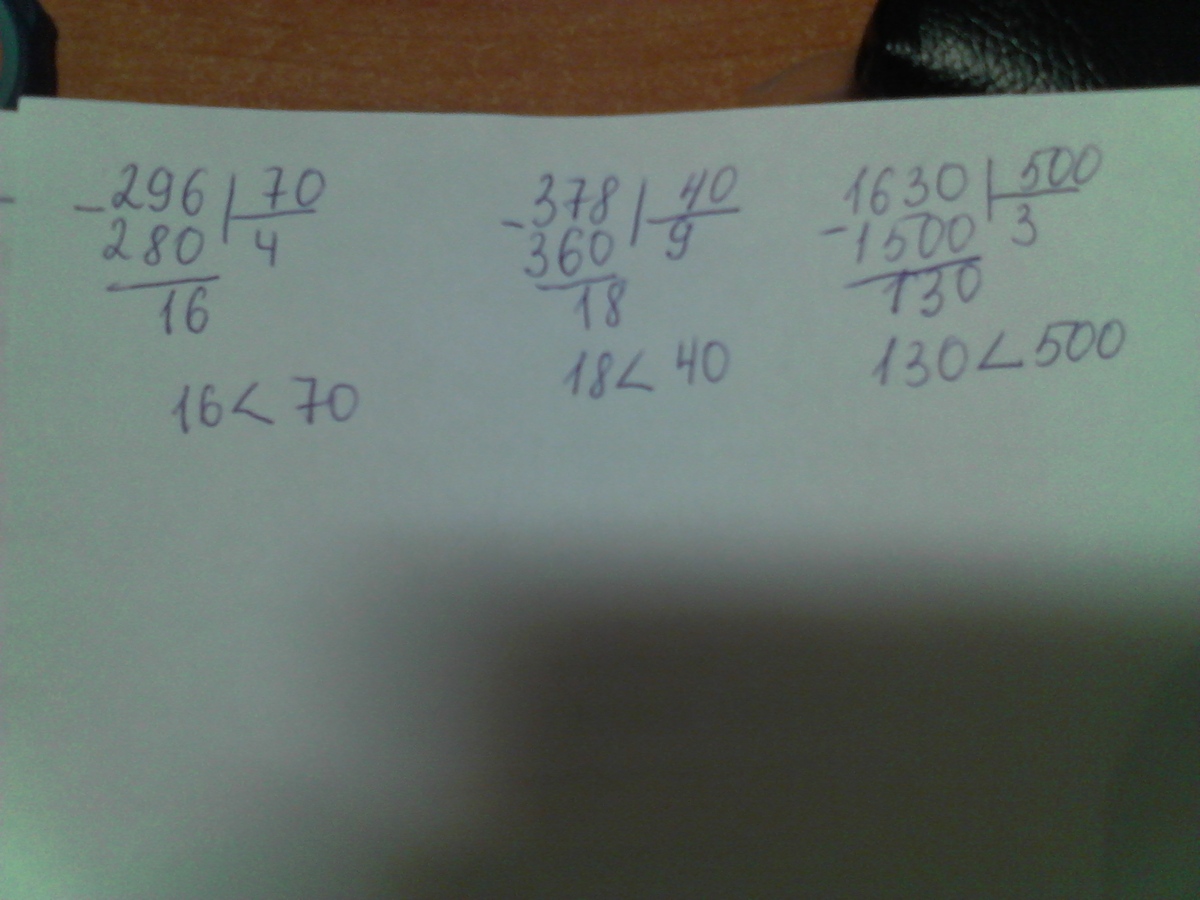 -296 | 70
280 | 4
16
16 < 70
-378 | 40
360 | 9
18
18 < 40
1630 | 500
-1500 | 3
130
130 < 500